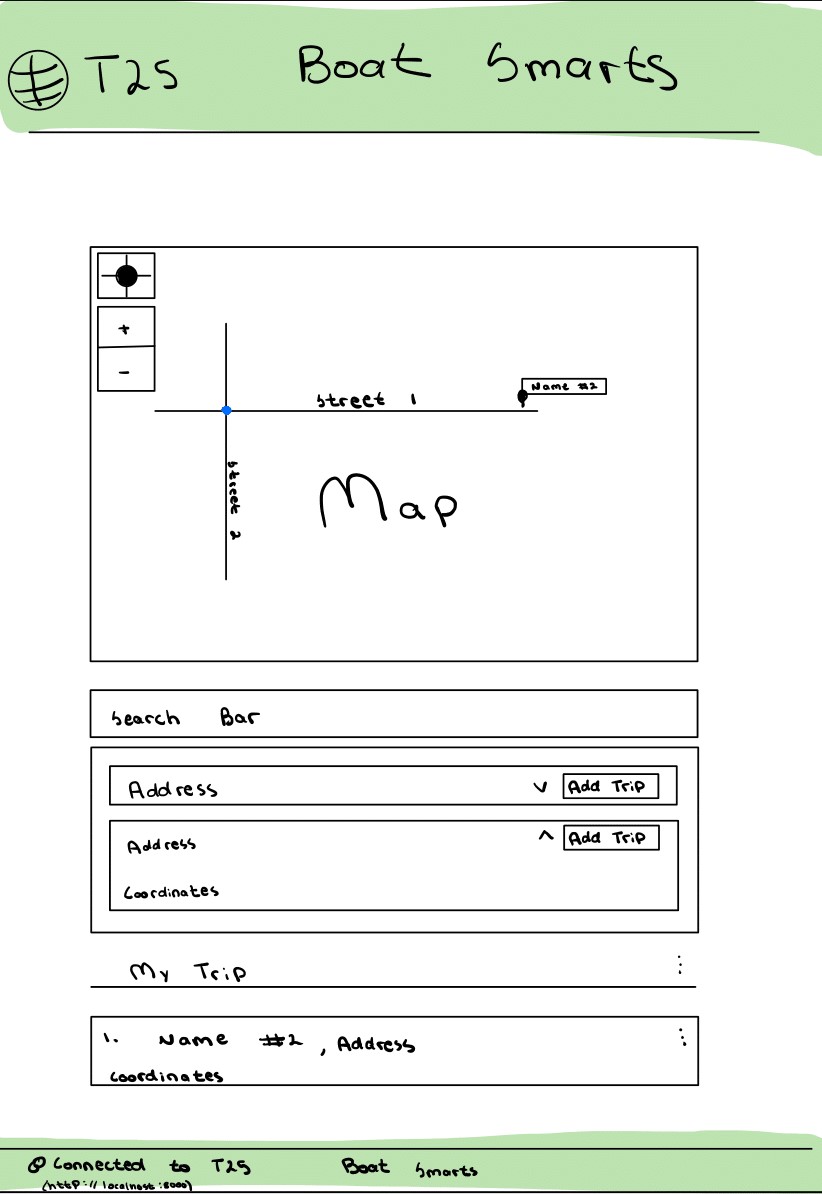 T25 Boat Smarts
+
-
Name #2
Street 1
Street 2
Map
Search Bar
Address v Add Trip
Address ^ Add Trip
Coordinates
My Trip ⋮
1. Name #2, Address ⋮
Coordinates
Connected to T25 Boat Smarts
(http://localhost:8000)